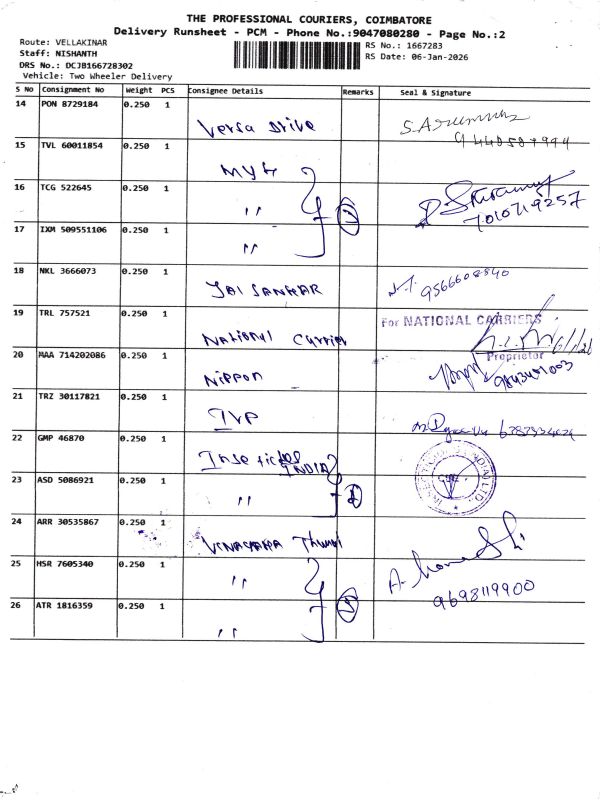 THE PROFESSIONAL COURIERS, COIMBATORE
Delivery Runsheet - PCM - Phone No.:9047080280 - Page No.:2
Route: VELLAKINAR
Staff: NISHANTH
DRS No.: DCJB166728302
Vehicle: Two Wheeler Delivery
RS No.: 1667283
RS Date: 06-Jan-2026
S No Consignment No Weight PCS Consignee Details Remarks Seal & Signature
14 PON 8729184 0.250 1 Versa Drive
15 TVL 60011854 0.250 1
16 TCG 522645 0.250 1 ,,
7010719257
17 IXM 509551106 0.250 1 ,,
18 NKL 3666073 0.250 1 JAI SANKAR 9566608840
19 TRL 757521 0.250 1 National Carrier
For NATIONAL CARRIERS
Proprietor
20 MAA 714202086 0.250 1 Nippon
21 TRZ 30117821 0.250 1 IVP
22 GMP 46870 0.250 1 INDIA
23 ASD 5086921 0.250 1 ,,
24 ARR 30535867 0.250 1
25 HSR 7605340 0.250 1 ,,
9698119900
26 ATR 1816359 0.250 1 ,,